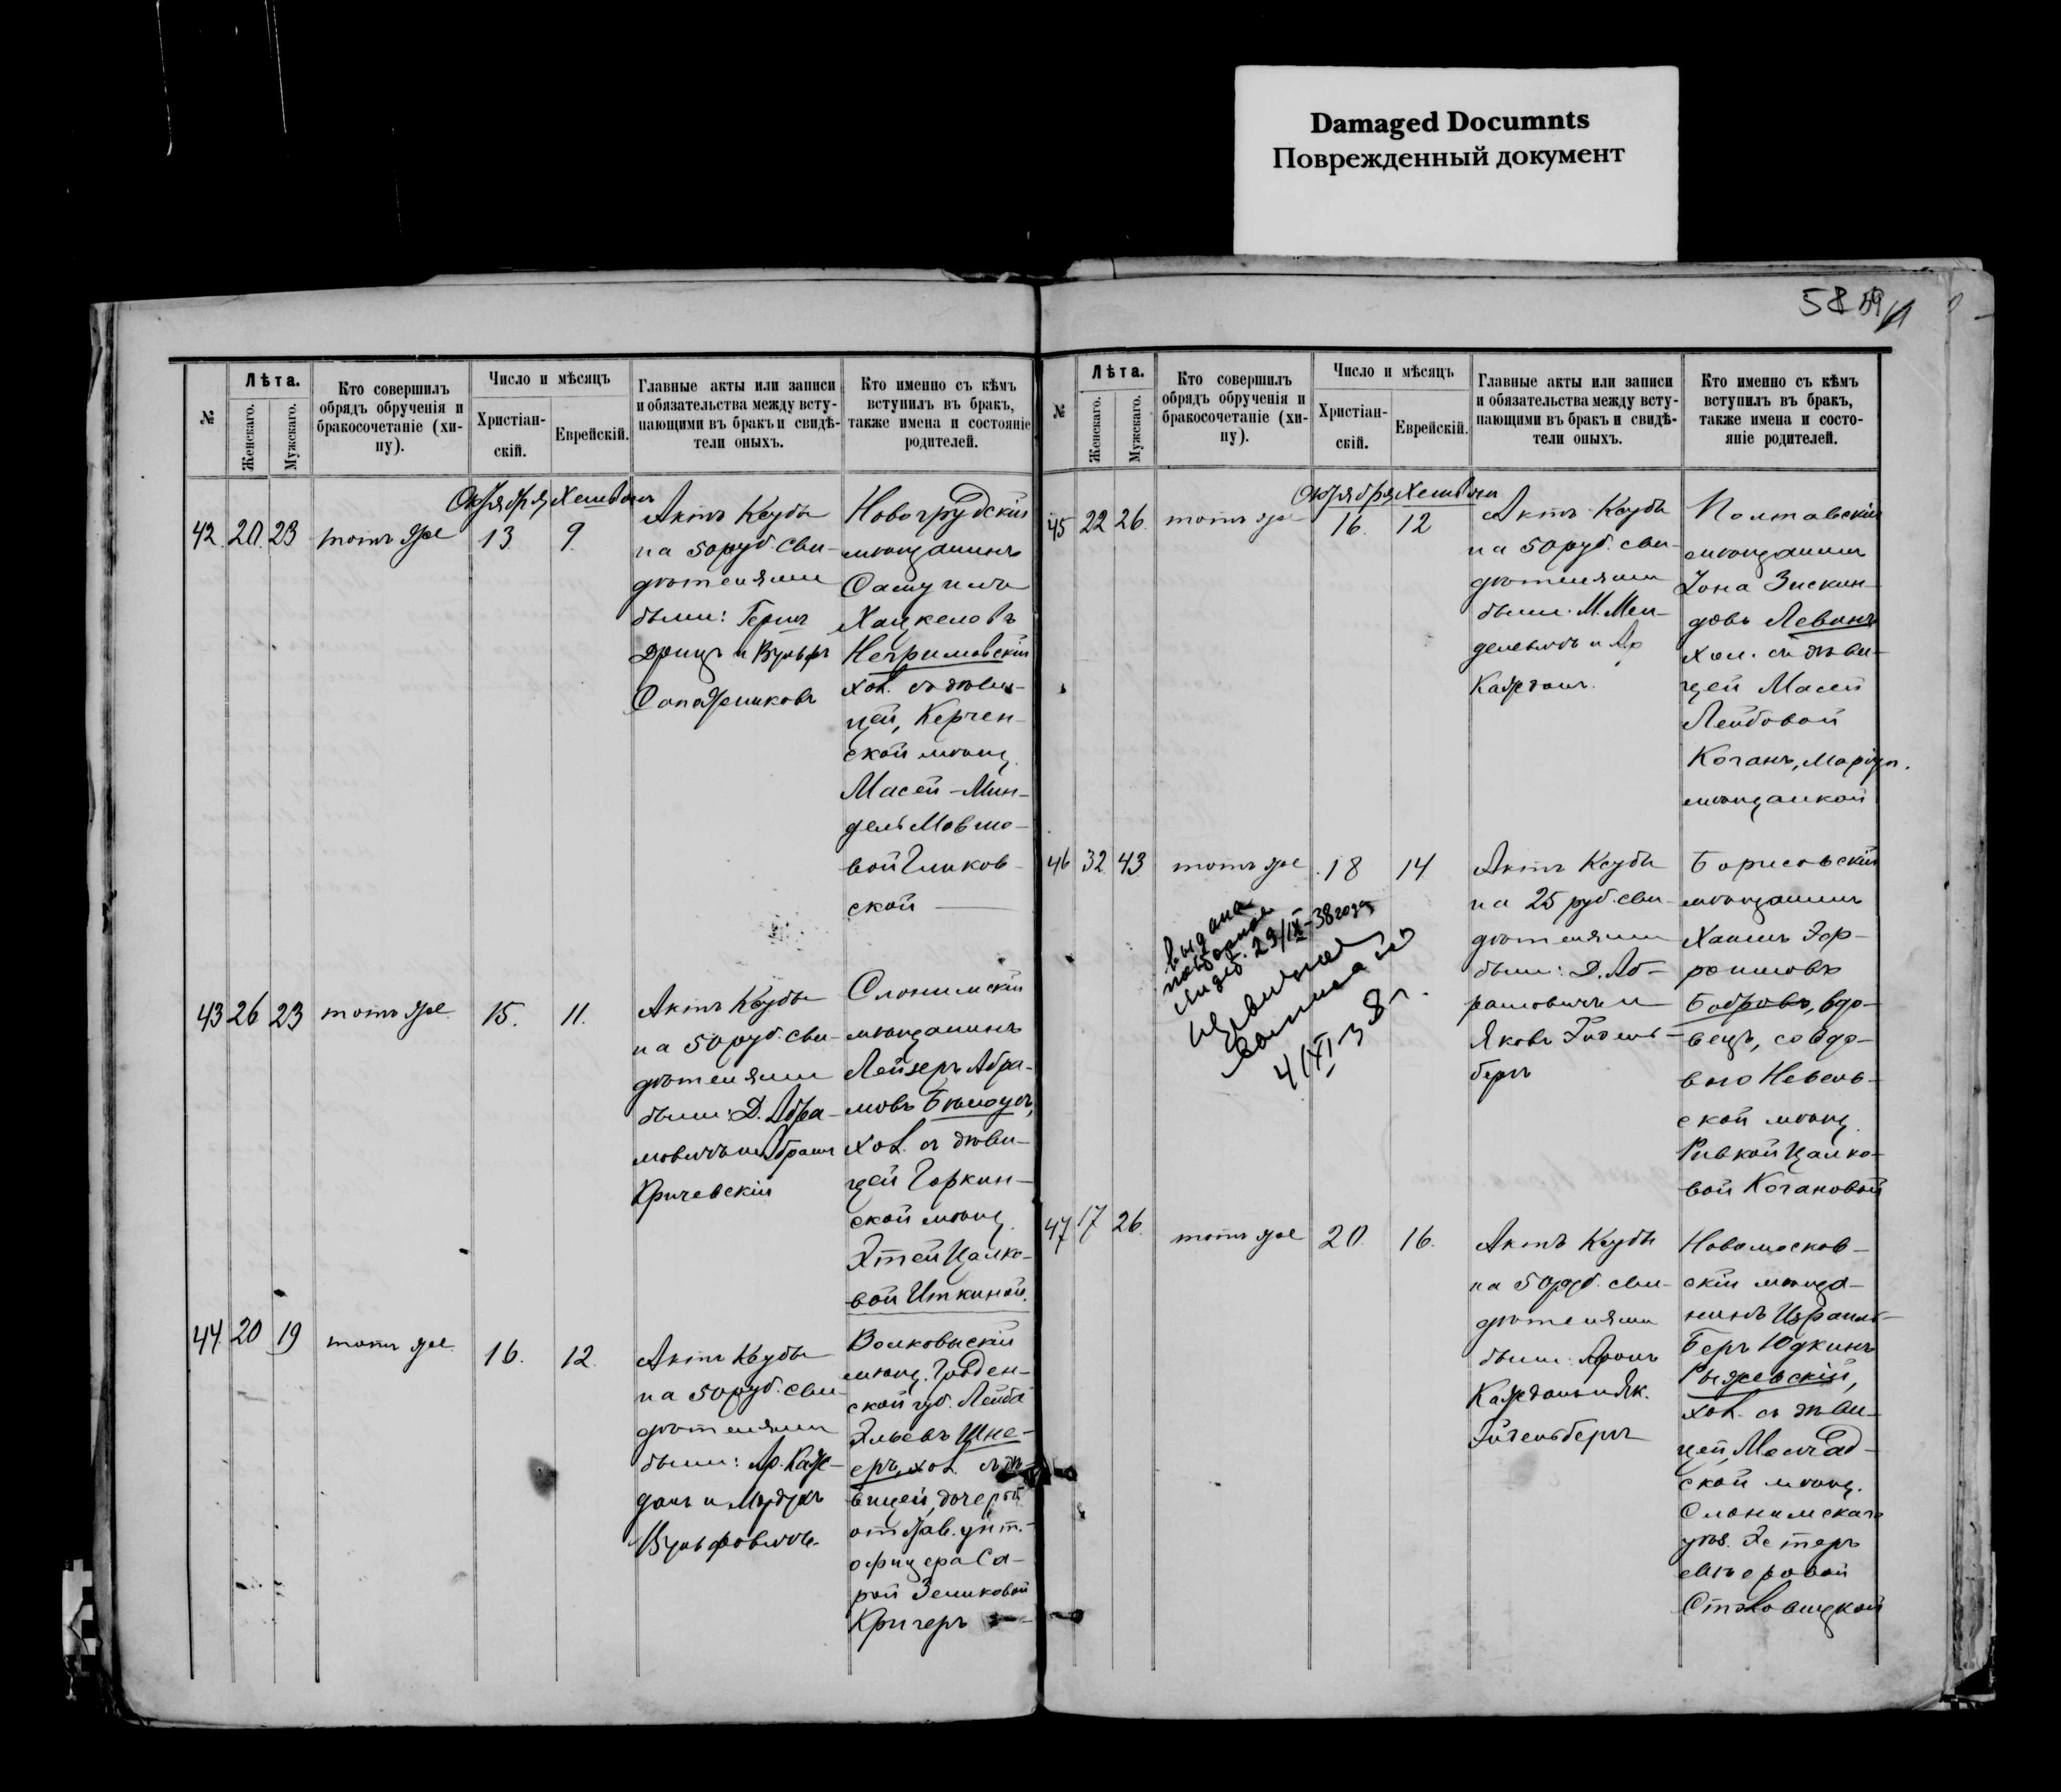 Damaged Documnts
Поврежденный документ
58 59
№
Лѣта.
Женскаго.
Мужскаго.
Кто совершилъ
обрядъ обрученія и
бракосочетаніе (хи-
пу).
Число и мѣсяцъ
Христіан-
скій.
Еврейскій.
Главные акты или записи
и обязательства между всту-
пающими въ бракъ и свидѣ-
тели оныхъ.
Кто именно съ кѣмъ
вступилъ въ бракъ,
также имена и состояніе
родителей.
Октября Хешванъ
42. 20. 23 тотъ же 13. 9.
Актъ Ксубы
на 50 руб. сви-
дѣтелями
были: Герцъ
и Вульфъ
Сапожниковъ
Новогрудскій
мѣщанинъ
Самуилъ
Хацкелевъ
Негримовскій
хол. съ дѣви-
цей, Керчен-
ской мѣщ.
Масей-Мин-
дель Мовшо-
вой Гликов-
ской
43 26 23 тотъ же 15. 11.
Актъ Ксубы
на 50 руб. сви-
дѣтелями
были: Д. Абра-
мовичъ и Абрамъ
Кричевскій
Слонимскій
мѣщанинъ
Лейзеръ Абра-
мовъ
хол. съ дѣви-
цей Горкин-
ской мѣщ.
Этей Цалко-
вой Иткиной.
44. 20 19 тотъ же 16. 12.
Актъ Ксубы
на 50 руб. сви-
дѣтелями
были: Ар. Каж-
данъ и Мордухъ
Вульфовичъ.
Волковыскій
мѣщ. Гроднен-
ской губ. Лейба
Эльевъ Шне-
еръ, хол. съ дѣ-
вицей, дочерью
отстав. унт.-
офицера Са-
рой Зеликовой
Кригеръ
№
Лѣта.
Женскаго.
Мужскаго.
Кто совершилъ
обрядъ обрученія и
бракосочетаніе (хи-
пу).
Число и мѣсяцъ
Христіан-
скій.
Еврейскій.
Главные акты или записи
и обязательства между всту-
пающими въ бракъ и свидѣ-
тели оныхъ.
Кто именно съ кѣмъ
вступилъ въ бракъ,
также имена и состо-
яніе родителей.
Октября Хешванъ
45 22 26. тотъ же 16. 12
Актъ Ксубы
на 50 руб. сви-
дѣтелями
были: М. Мен-
делевичъ и Ар.
Кажданъ.
Полтавскій
мѣщанинъ
Іона Зискин-
довъ Левинъ
хол. съ дѣви-
цей Масей
Лейбовой
Коганъ, Маріуп.
мѣщанкой
46 32. 43 тотъ же 18 14
выдана
повторная
29/IX-38 года
4/XI-38 г.
Актъ Ксубы
на 25 руб. сви-
дѣтелями
были: Д. Аб-
рамовичъ и
Яковъ Эйдель-
бергъ
Борисовскій
мѣщанинъ
Хаимъ Эф-
роимовъ
Бобровъ, вдо-
вецъ, со вдо-
вою Невель-
ской мѣщ.
Ривкой Цалко-
вой Когановой
47 17 26. тотъ же 20. 16.
Актъ Ксубы
на 50 руб. сви-
дѣтелями
были: Аронъ
Кажданъ и Як.
Эйдельбергъ
Новомосков-
скій мѣща-
нинъ Израиль-
Беръ Юдкинъ
Рыжевскій,
хол. съ дѣви-
цей, Молчад-
ской мѣщ.
Слонимскаго
уѣз. Эстеръ
Меѣеровой
Столовицкой